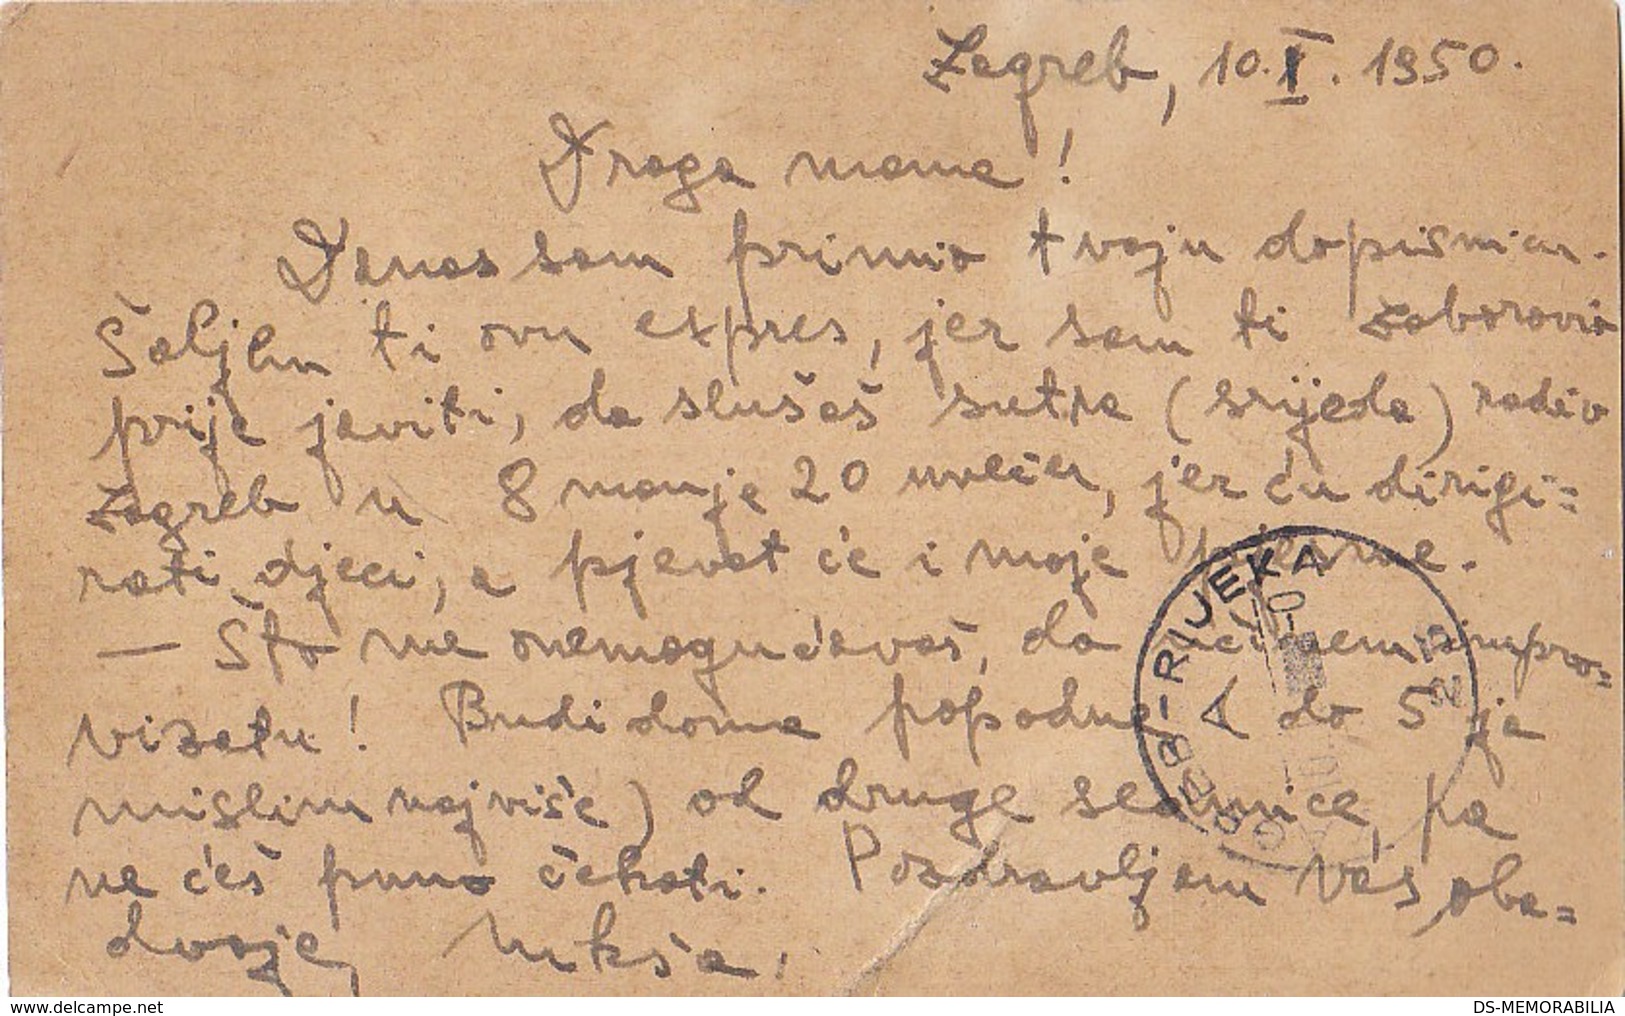 Zagreb, 10.I.1950.
Draga mama!
Danas sam primio tvoju dopisnicu.
Šaljem ti ovu expres, jer sam ti zaboravio
prije javiti, da slušaš sutra (srijeda) radio
Zagreb u 8 manje 20 uvečer, jer ću dirigi=
rati djeci, a pjevat će i moje pjesme.
— Što me onemogućavaš, da učinem impro=
vizatu! Budi doma popodne (do 5 je
mislim najviše) od druge sedmice, pa
ne ćeš puno čekati. Pozdravljam Vas oba=
dvoje, Mikša.
RIJEKA
DS-MEMORABILIA
www.delcampe.net